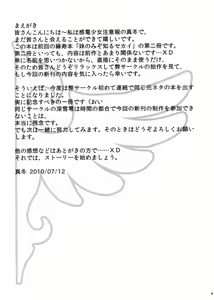 まえがき
皆さんこんにちは～私は感電少女注意報の真冬で、
まだ皆さんと会えることができて嬉しいです。
この本は前回の緣寿本「妹のみぞ知るセカイ」の第二冊です。
第二冊といっても、内容は前作とあまり関係ないです…XD
単に名前を思いつかないから、直接にそのまま使うだけ、
そのため皆さんどうぞリラックスして弊サークルの拙作を見て、
もし今回の新刊の内容を気に入ったら幸いです。
そういえば、今度は弊サークル初めて連続で同じ元ネタの本を出す
ことになりました。
実に記念すべきの一冊です（おい
同じサークルの深雪電は時間の都合で今回の新刊の制作を参加でき
ないことは、
本当に残念です。
でも次は一緒に努力してみます。そのときはどうぞよろしくお願い
します。
他の感想などはあとがきの方で……XD
それでは、ストーリーを始めましょう。
真冬 2010/07/12